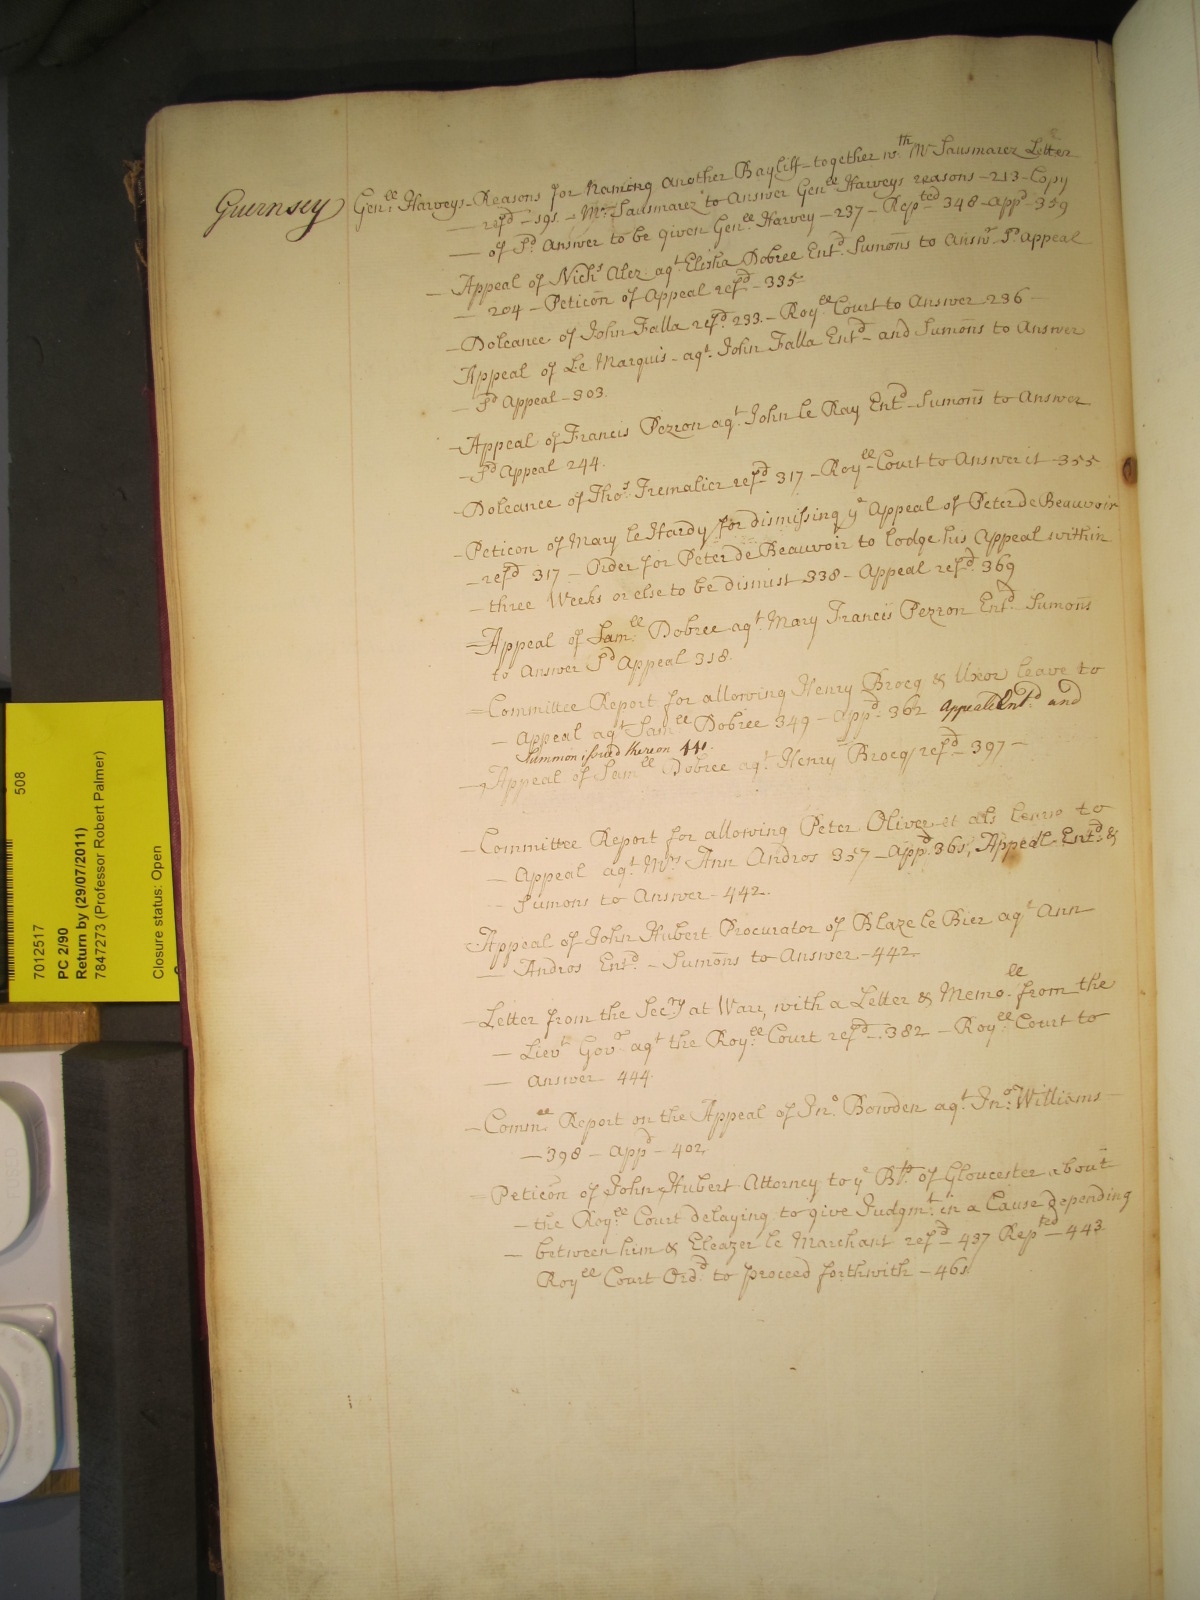 Guernsey
Gen.ll Harveys Reasons for Naming another Bayliff together wth Mr Sausmarez Letter
— refd — 191 — Mr. Sausmarez to Answer Genll Harveys reasons — 213 — Copy
— of Sd Answer to be given Genll Harvey — 237 — Repted 348 — appd 359
— Appeal of Nichs Alez agt Elisha Dobree Entd Sumons to Answr Sd appeal
— 204 — Peticon of Appeal refd — 335
— Doleance of John Falla refd 233 — Royll Court to Answer 236 —
Appeal of Le Marquis — agt John Falla Entd — and Sumons to Answer
— Sd Appeal — 303.
— Appeal of Francis Pezron agt John le Ray Entd — Sumons to Answer
— Sd Appeal 244.
— Doleance of Thos Tremalier refd 317 — Royll Court to Answer it 355
— Peticon of Mary le Hardy for dismissing ye Appeal of Peter de Beauvoir
— refd 317 — Order for Peter de Beauvoir to lodge his Appeal within
— three Weeks or else to be dismist 338 — Appeal refd 369
= Appeal of Samll Dobree agt Mary Francis Pezron Entd Sumons
to Answer Sd Appeal 318.
= Committee Report for allowing Henry Brocq & Uxor leave to
— Appeal agt Samll Dobree 349 — appd 362 Appeale Entd and
Summon issued thereon 441.
— Appeal of Samll Dobree agt Henry Brocq refd 397 —
— Committee Report for allowing Peter Oliver et als leave to
— Appeal agt Mrs Ann Andros 357 — appd 361, Appeal Entd &
Sumons to Answer — 442.
Appeal of John Hubert Procurator of Blaze le Bier agt Ann
— Andros Entd — Sumons to Answer — 442
— Letter from the Secry at Warr, with a Letter & Memoll from the
— Lievt Govr agt the Royll Court refd 382 — Royll Court to
— answer 444
— Comee Report on the Appeal of Jno Bowden agt Jno Williams —
— 398 — appd — 402
= Peticon of John Hubert Attorney to ye Bp of Gloucester about
— the Royll Court delaying to give Judgmt in a Cause depending
— between him & Eleazer le Marchant refd 437 Repted — 443
Royll Court Ordd to proceed forthwith — 461
508
7012517
PC 2/90
Return by (29/07/2011)
7847273 (Professor Robert Palmer)
Closure status: Open